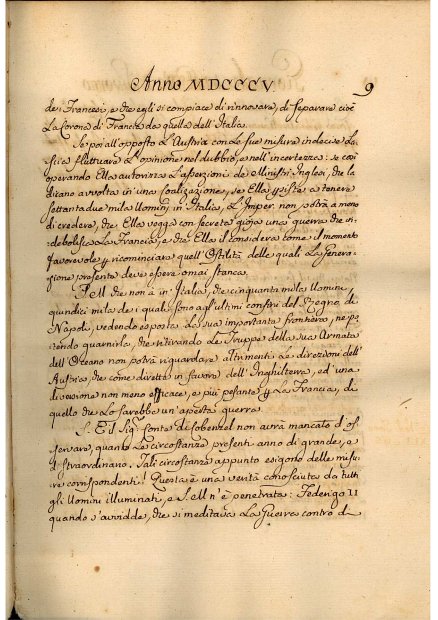 Anno MDCCCV.
9
de i Francesi, e die egli si compiace di rinnovare, di separare cioè
La Corona di Francia da quella dell'Italia.
Se poi all'opposto L'Austria con Le sue misure indecise La-
scia fluttuare L'opinione nel dubbio, e nell'incertezza: se così
operando Ella autorizza L'asserzioni de Ministri Inglesi, die la
dicano avvolta in una coalizzazione, se Ella persiste a tenere
settantadue mila Uomini in Italia, L'Imper. non potrà a meno
di credere, die Ella vegga con secreta gioja una guerra die in-
debolisca La Francia, e die Ella il consideri come il momento
favorevole per ricominciare quell'Ostilità delle quali La Genera-
zione presente deve essere omai stanca.
S. M. die non à in Italia, die cinquanta mila Uomini,
quindici mila de i quali sono agl'ultimi confini del Regno di
Napoli, vedendo esposta La sua importante frontiera, ne po-
tendo guarnirla, die ritirando Le Truppe della sua Armata
dell'Oceano non potrà riguardare altrimenti Le direzioni dell'
Austria, die come dirette in favore dell'Inghilterra, ed una
diversione non meno efficace, e più pesante per La Francia, di
quello die Lo sarebbe un'aperta guerra.
S. E. il Sig. Conte di Cobenzel non avrà mancato d'os-
servare, quanto Le circostanze presenti anno di grande, e
di straordinario. Tali circostanze appunto esigono delle misu-
re corrispondenti! Questa è una verità conosciuta da tutti
gli Uomini illuminati, e S. M. n'è penetrata: Federigo II
quando s'avvidde, die si meditava La Guerra contro di